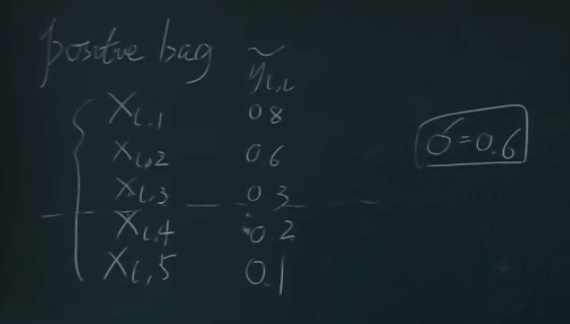 positive bag ỹ_{i,i}
X_{i,1} 0.8
X_{i,2} 0.6 σ=0.6
X_{i,3} 0.3
X_{i,4} 0.2
X_{i,5} 0.1